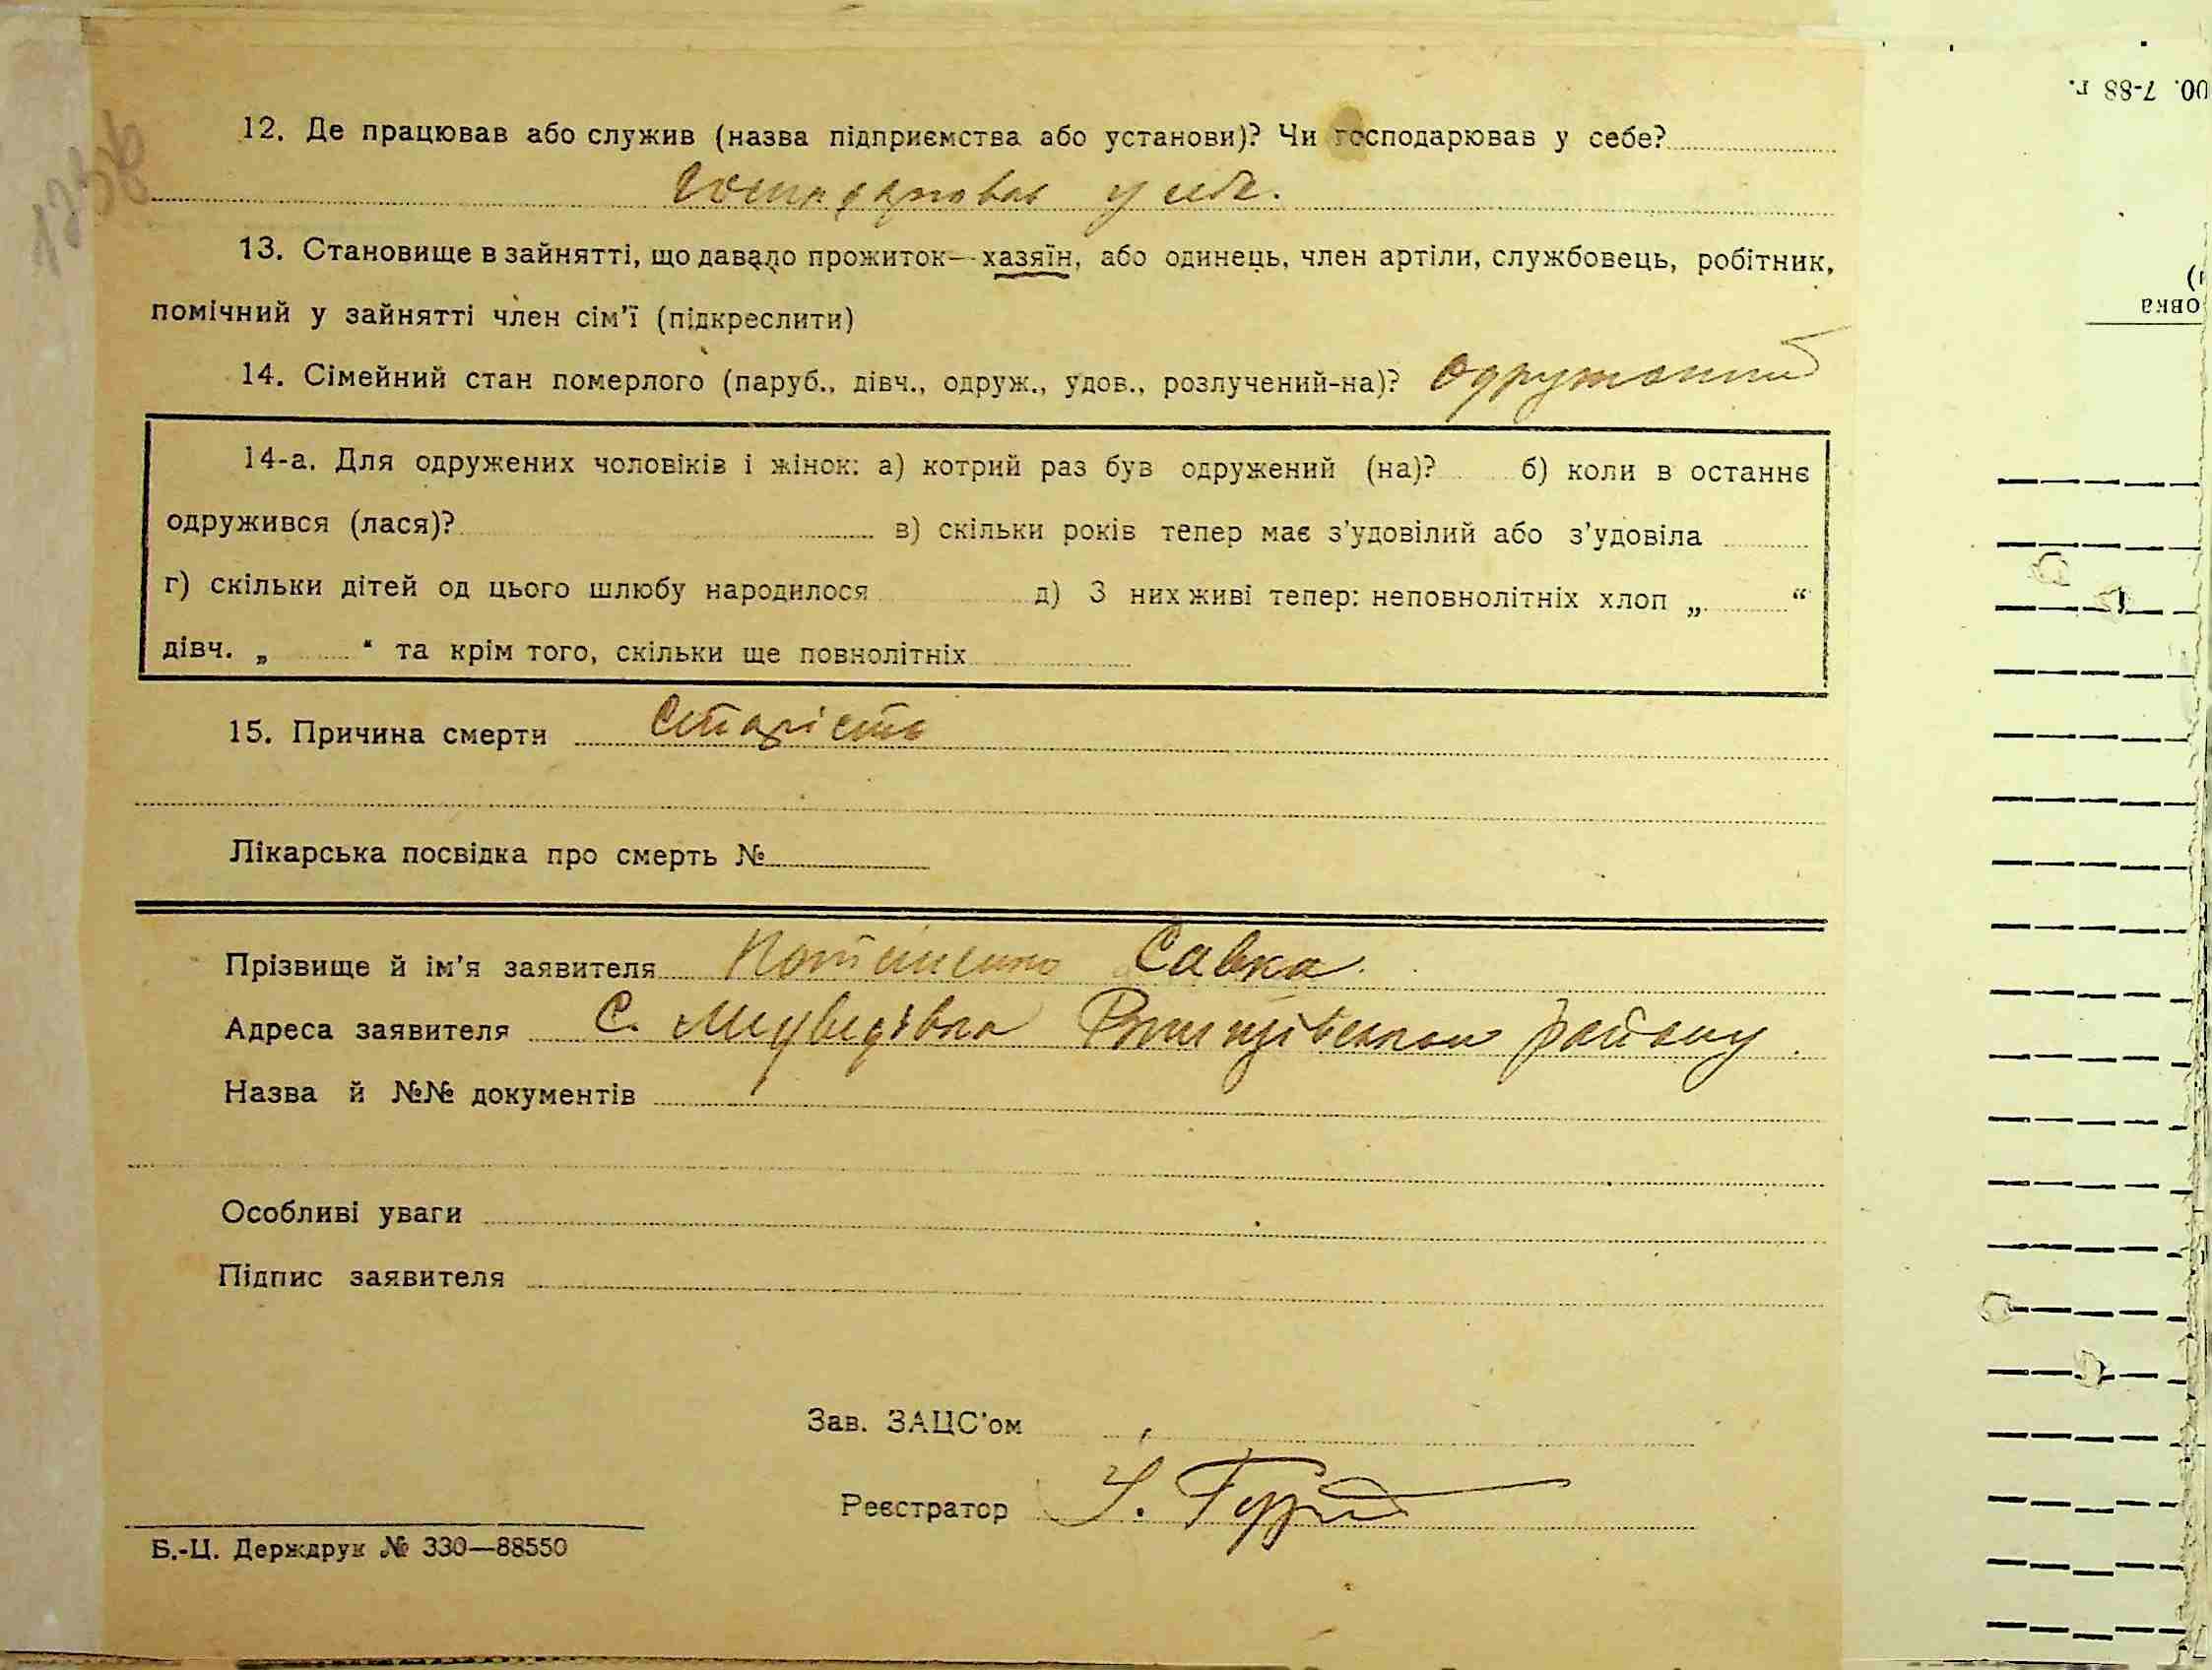 12. Де працював або служив (назва підприємства або установи)? Чи господарював у себе?
Господарював у себе.
13. Становище в зайнятті, що давало прожиток—хазяїн, або одинець, член артіли, службовець, робітник,
помічний у зайнятті член сім'ї (підкреслити)
14. Сімейний стан померлого (паруб., дівч., одруж., удов., розлучений-на)? одружений
14-а. Для одружених чоловіків і жінок: а) котрий раз був одружений (на)? б) коли в останнє
одружився (лася)? в) скільки років тепер має з'удовілий або з'удовіла
г) скільки дітей од цього шлюбу народилося д) З них живі тепер: неповнолітніх хлоп „ “
дівч. „ “ та крім того, скільки ще повнолітніх
15. Причина смерти Старість
Лікарська посвідка про смерть №
Прізвище й ім'я заявителя Савка.
Адреса заявителя С. Медведівка району.
Назва й №№ документів
Особливі уваги
Підпис заявителя
Зав. ЗАЦС'ом
Реєстратор
Б.-Ц. Держдрук № 330—88550
00. 7-88 г.
овка